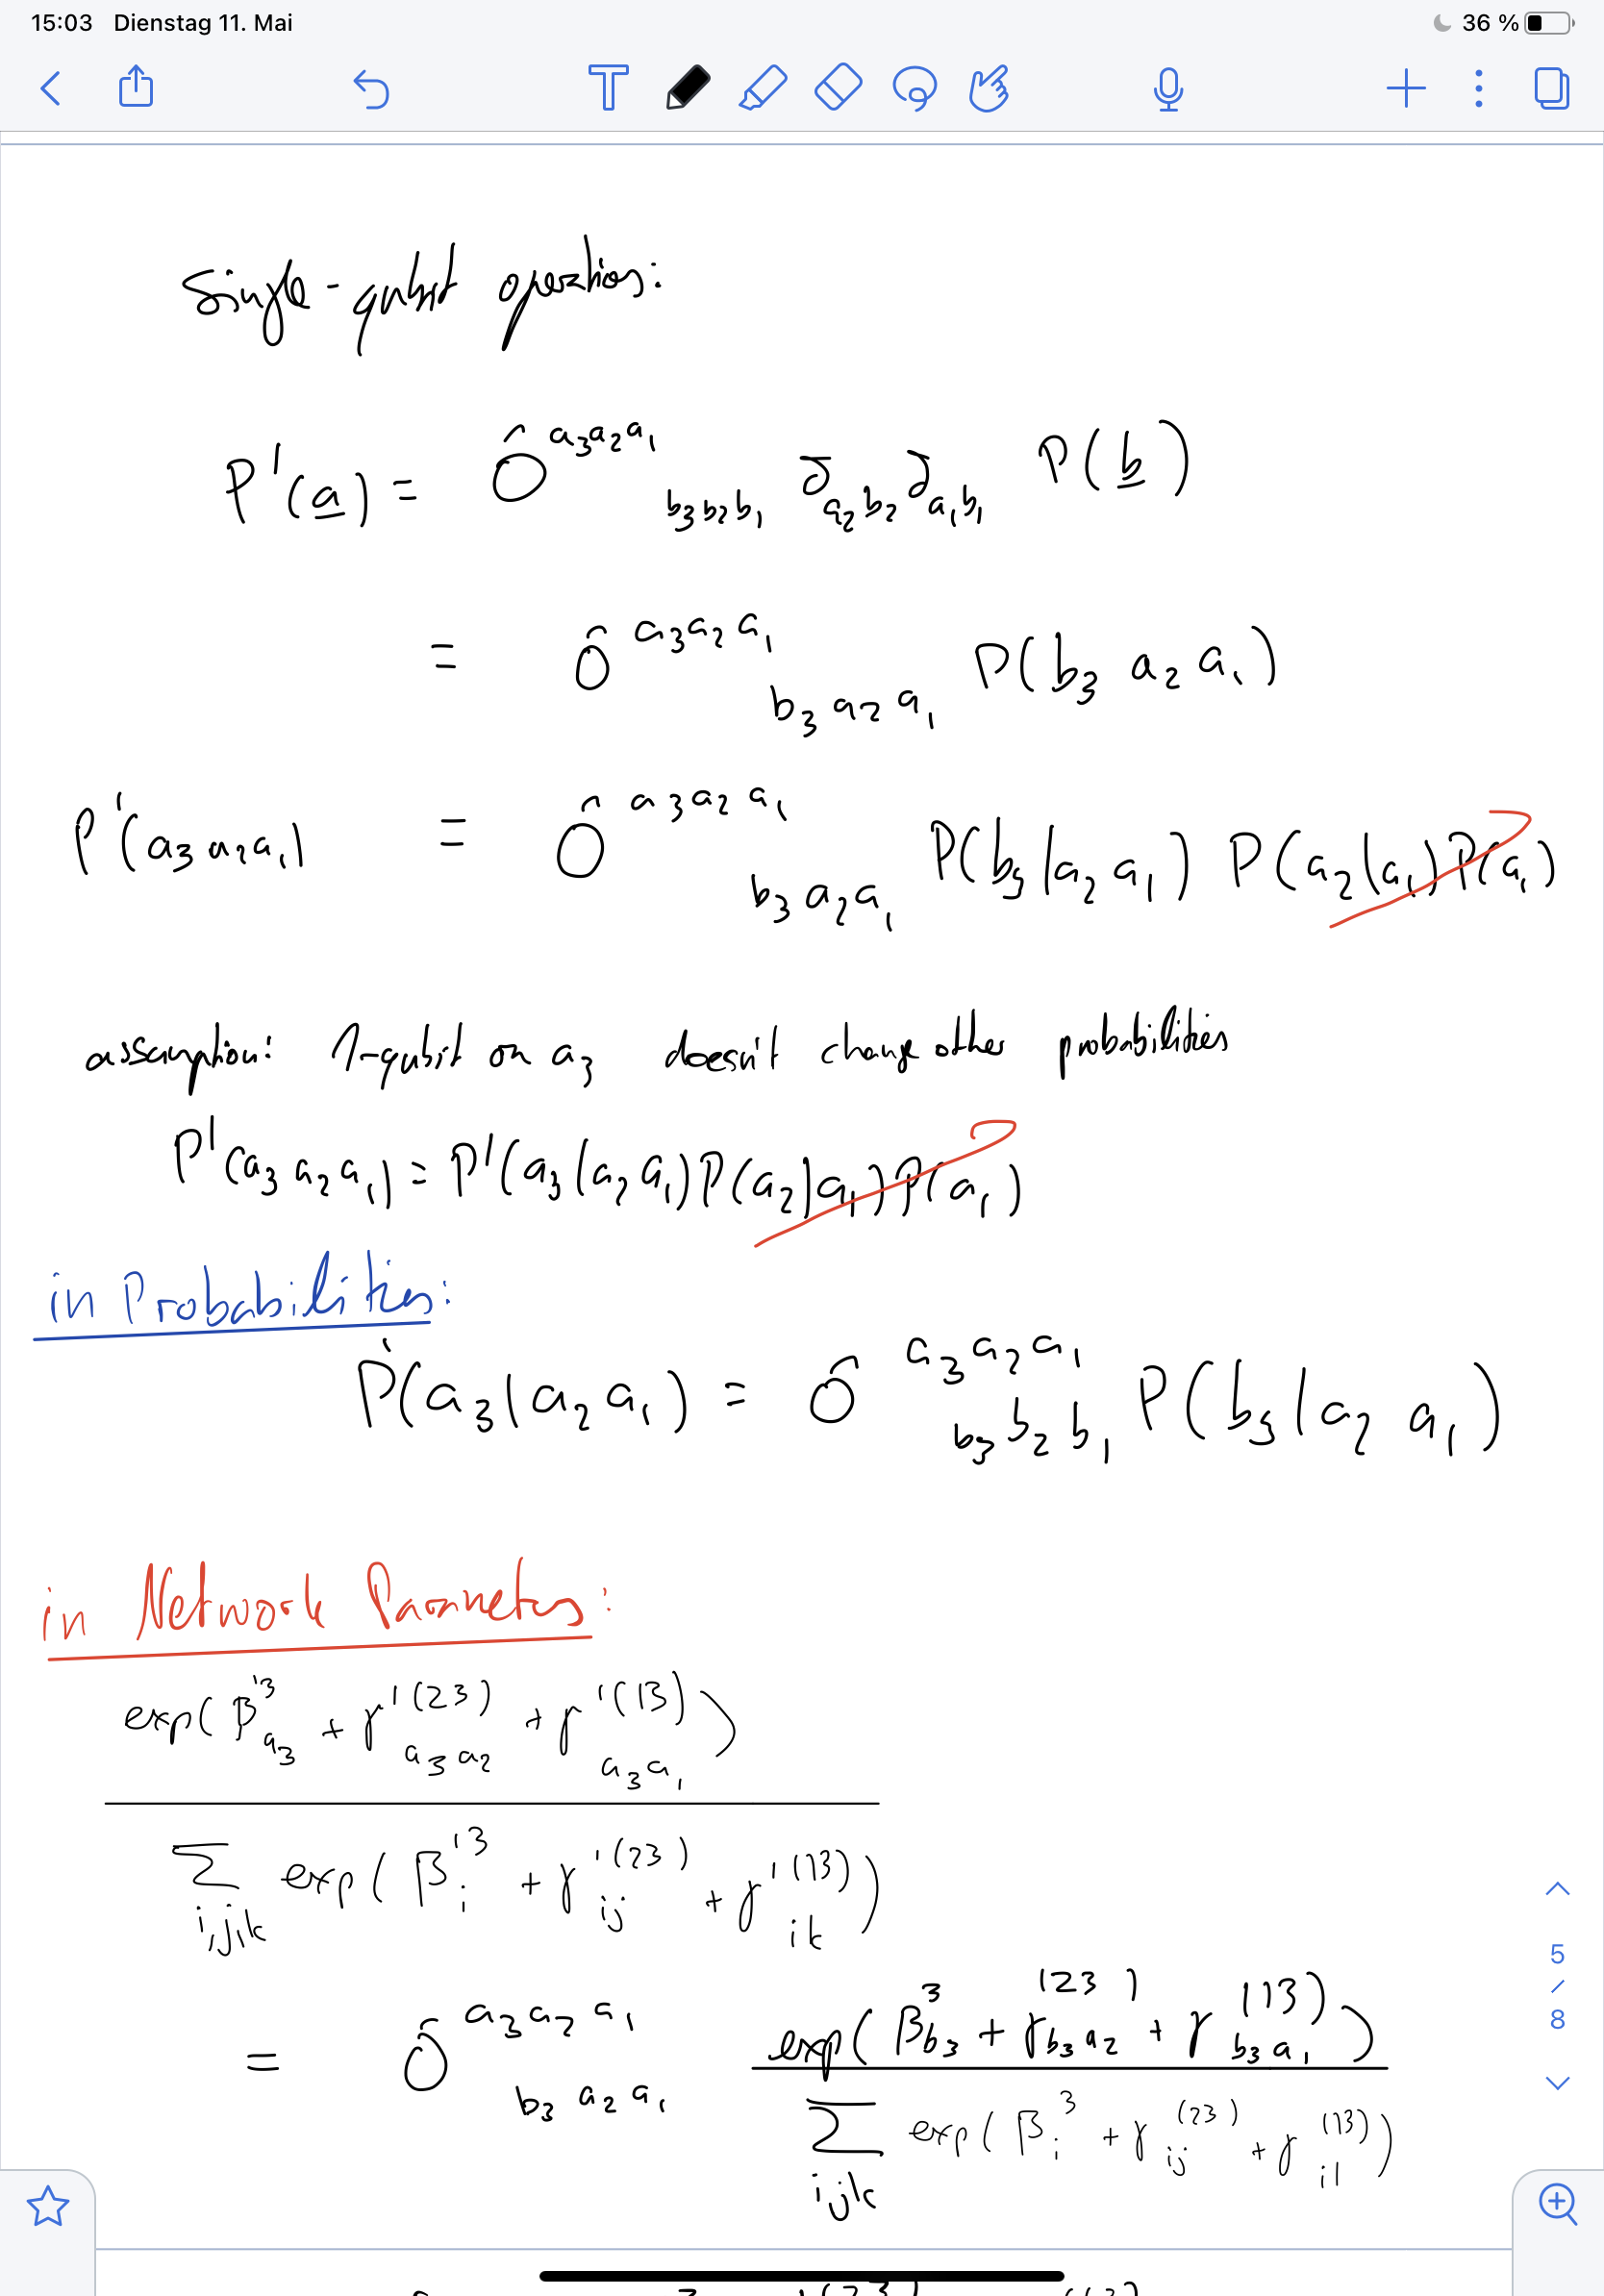 15:03 Dienstag 11. Mai 36 %
T
Single-qubit operations:
P'(a) = Ô^{a₃a₂a₁}_{b₃b₂b₁} ∂_{a₂b₂} ∂_{a₁b₁} P(b)
= Ô^{a₃a₂a₁}_{b₃a₂a₁} P(b₃ a₂ a₁)
P'(a₃a₂a₁) = Ô^{a₃a₂a₁}_{b₃a₂a₁} P(b₃|a₂ a₁) P(a₂|a₁) P(a₁)
assumption: 1-qubit on a₃ doesn't change other probabilities
P'(a₃ a₂ a₁) = P'(a₃|a₂ a₁) P(a₂|a₁) P(a₁)
in Probabilities:
P'(a₃|a₂ a₁) = Ô^{a₃a₂a₁}_{b₃b₂b₁} P(b₃|a₂ a₁)
in Network Parameters:
exp(β'^3_{a₃} + γ'^{(23)}_{a₃a₂} + γ'^{(13)}_{a₃a₁})
Σ_{i,jk} exp(β'^3_i + γ'^{(23)}_{ij} + γ'^{(13)}_{ik})
= Ô^{a₃a₂a₁}_{b₃a₂a₁} exp(β^3_{b₃} + γ^{(23)}_{b₃a₂} + γ^{(13)}_{b₃a₁})
Σ_{ijk} exp(β^3_i + γ^{(23)}_{ij} + γ^{(13)}_{il})
5
/
8